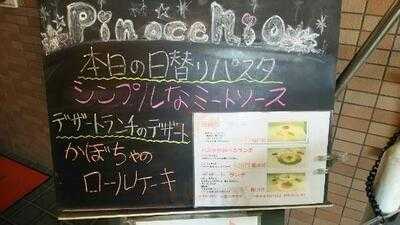 Pinocchio
本日の日替りパスタ
シンプルなミートソース
デザートランチのデザート
かぼちゃの
ロールケーキ